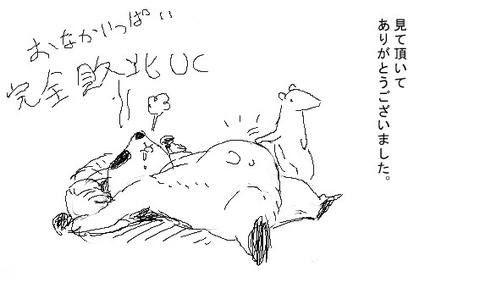 おなかいっぱい
完全敗北UC
見て頂いて
ありがとうございました。